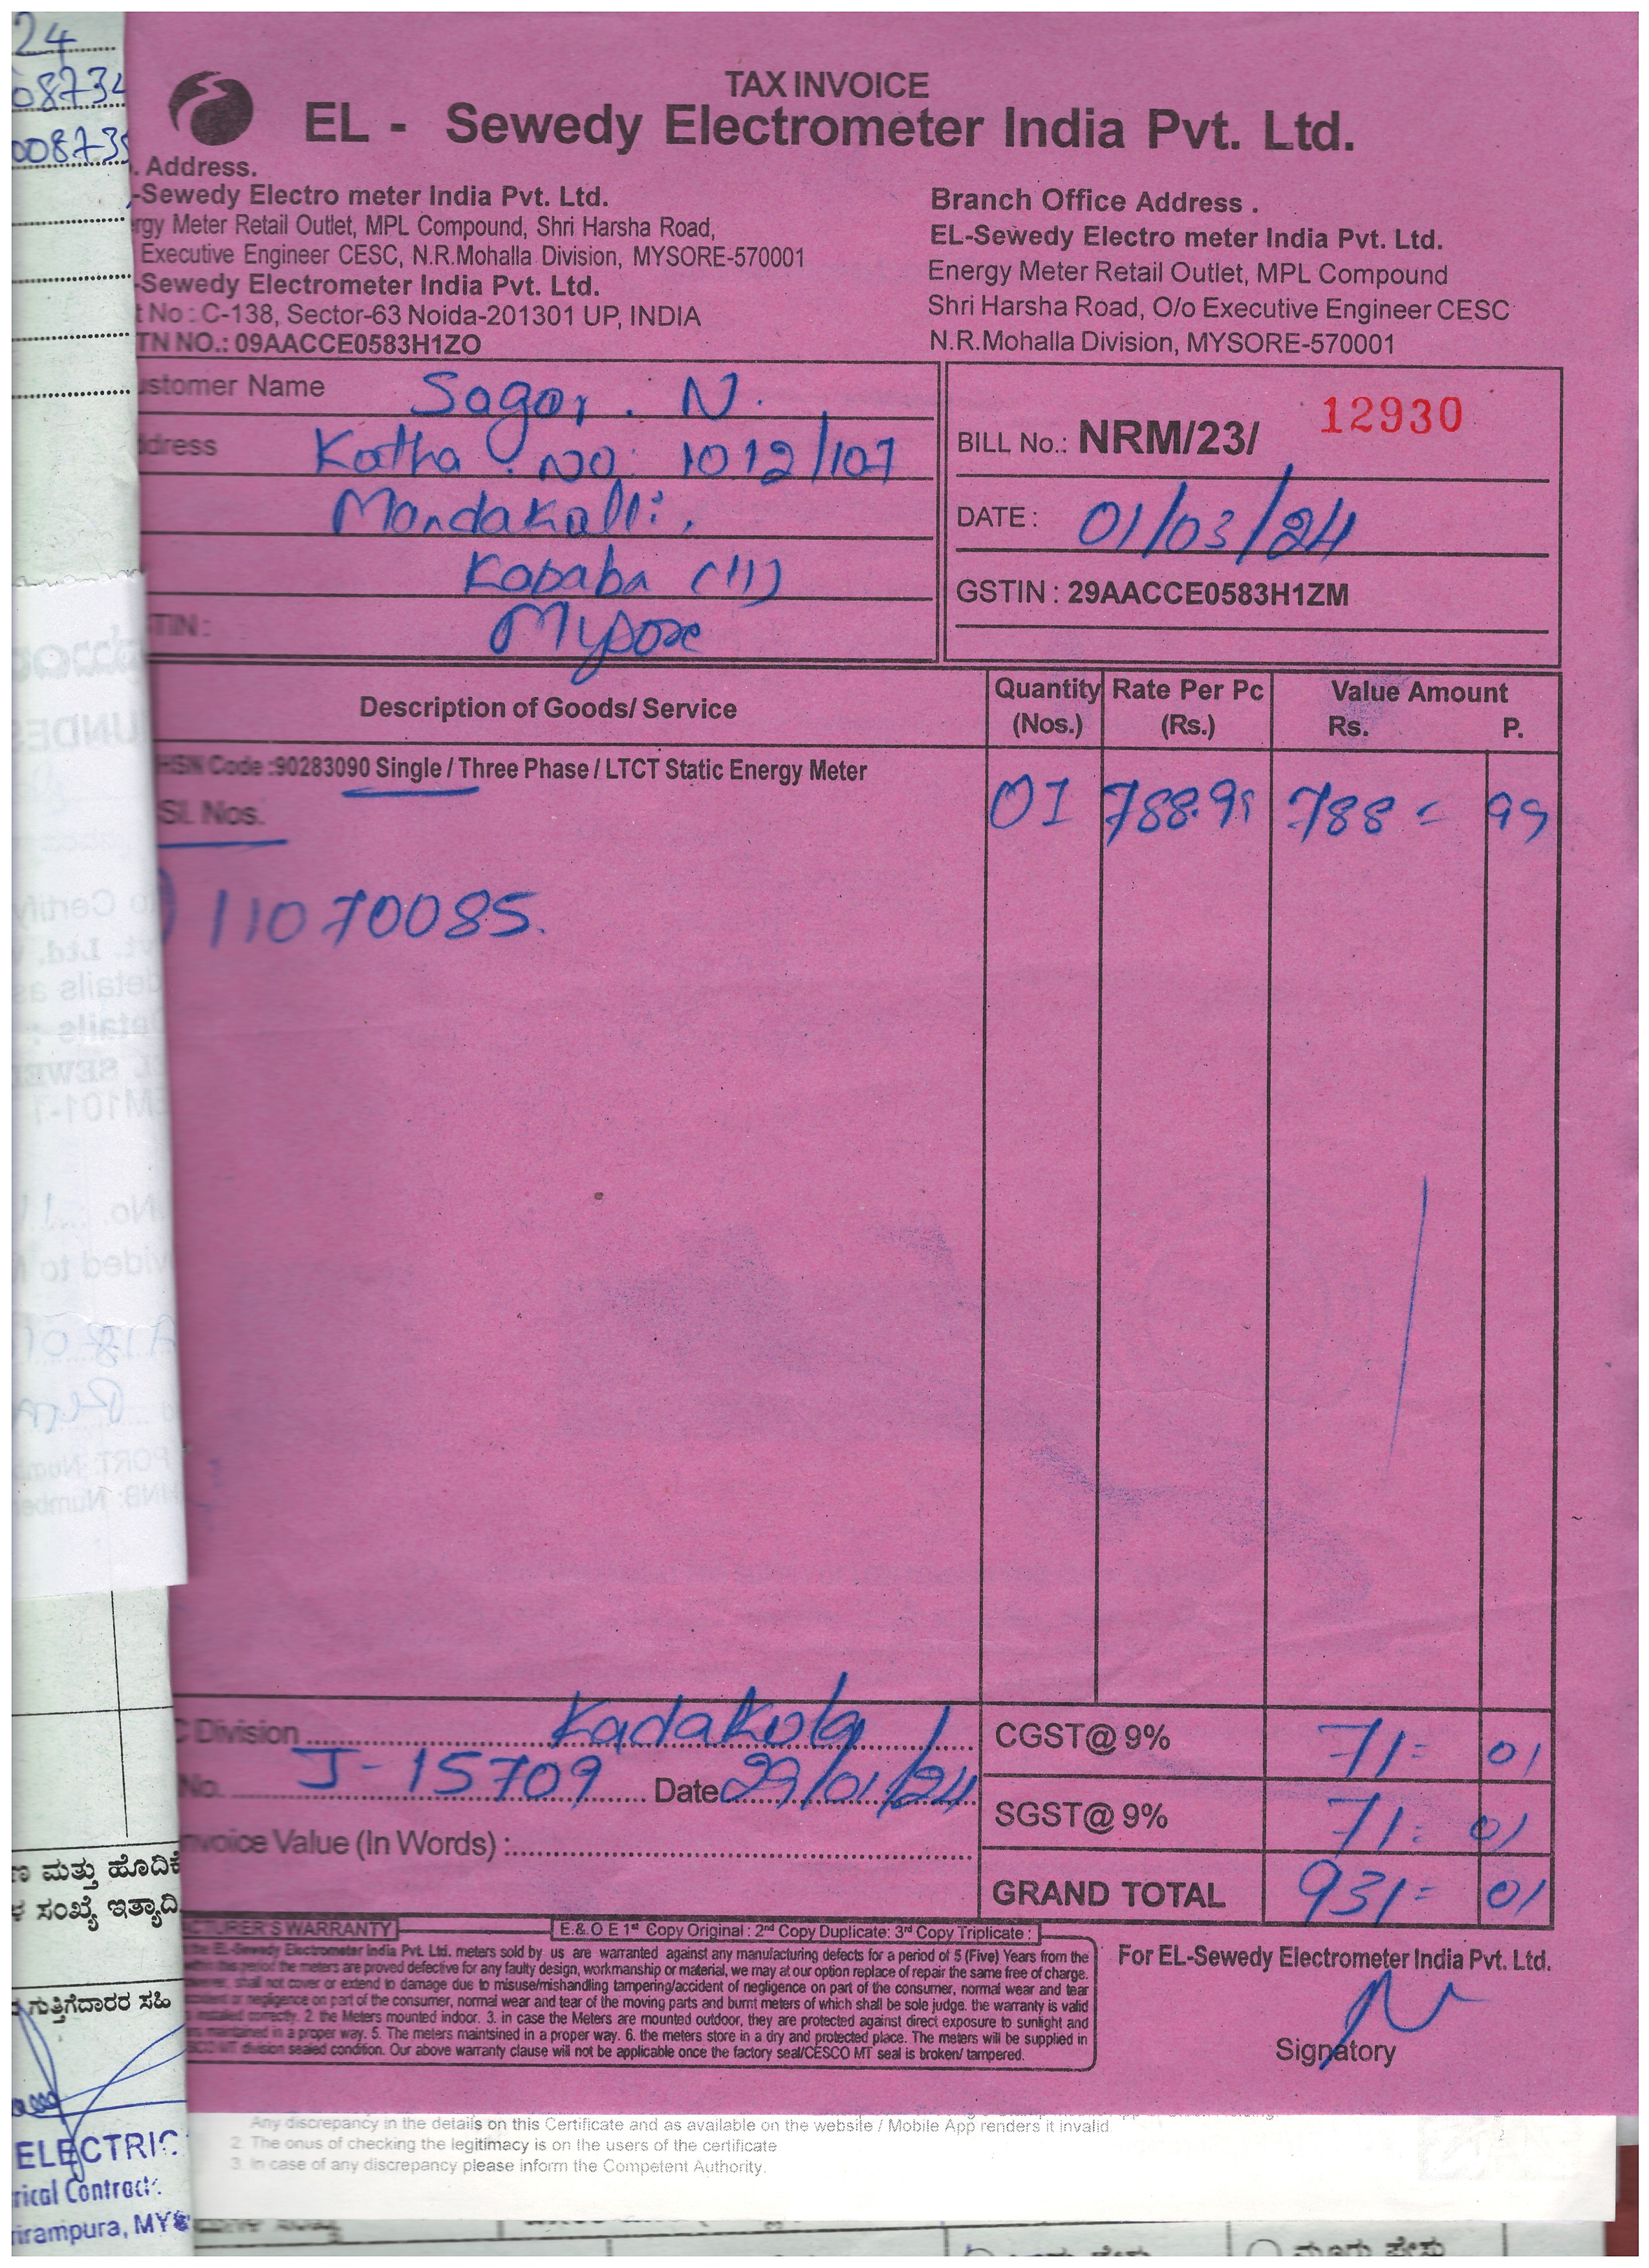 24
08734
008735
TAX INVOICE
EL - Sewedy Electrometer India Pvt. Ltd.
. Address.
-Sewedy Electro meter India Pvt. Ltd.
rgy Meter Retail Outlet, MPL Compound, Shri Harsha Road,
Executive Engineer CESC, N.R.Mohalla Division, MYSORE-570001
-Sewedy Electrometer India Pvt. Ltd.
t No : C-138, Sector-63 Noida-201301 UP, INDIA
TN NO.: 09AACCE0583H1ZO
Branch Office Address .
EL-Sewedy Electro meter India Pvt. Ltd.
Energy Meter Retail Outlet, MPL Compound
Shri Harsha Road, O/o Executive Engineer CESC
N.R.Mohalla Division, MYSORE-570001
ustomer Name Sagar. N.
ddress Katha . NO: 1012/107
Mandakalli.
Kasaba (H)
TIN : Mysore
BILL No.: NRM/23/ 12930
DATE : 01/03/24
GSTIN : 29AACCE0583H1ZM
Description of Goods/ Service
Quantity (Nos.)
Rate Per Pc (Rs.)
Value Amount
Rs. P.
HSN Code :90283090 Single / Three Phase / LTCT Static Energy Meter
01 788.99 788 = 99
Sl. Nos.
) 11070085.
C Division Kadakola
No. J-15709 Date 29/01/24
nvoice Value (In Words) :
CGST@ 9% 71= 01
SGST@ 9% 71= 01
GRAND TOTAL 931= 01
CTURER'S WARRANTY
E.& O E 1st Copy Original : 2nd Copy Duplicate: 3rd Copy Triplicate :
the EL-Sewedy Electrometer India Pvt. Ltd. meters sold by us are warranted against any manufacturing defects for a period of 5 (Five) Years from the
within this period the meters are proved defective for any faulty design, workmanship or material, we may at our option replace of repair the same free of charge.
however, shall not cover or extend to damage due to misuse/mishandling tampering/accident of negligence on part of the consumer, normal wear and tear
or negligence on part of the consumer, normal wear and tear of the moving parts and burnt meters of which shall be sole judge. the warranty is valid
installed correctly. 2. the Meters mounted indoor. 3. in case the Meters are mounted outdoor, they are protected against direct exposure to sunlight and
maintained in a proper way. 5. The meters maintsined in a proper way. 6. the meters store in a dry and protected place. The meters will be supplied in
SCO MT division sealed condition. Our above warranty clause will not be applicable once the factory seal/CESCO MT seal is broken/ tampered.
For EL-Sewedy Electrometer India Pvt. Ltd.
Signatory
ಮತ್ತು ಹೊದಿಕೆ
ಸಂಖ್ಯೆ ಇತ್ಯಾದಿ
ಗುತ್ತಿಗೆದಾರರ ಸಹಿ
ELECTRIC
rical Contract
rirampura, MYS
Any discrepancy in the details on this Certificate and as available on the website / Mobile App renders it invalid
2. The onus of checking the legitimacy is on the users of the certificate
3. In case of any discrepancy please inform the Competent Authority.